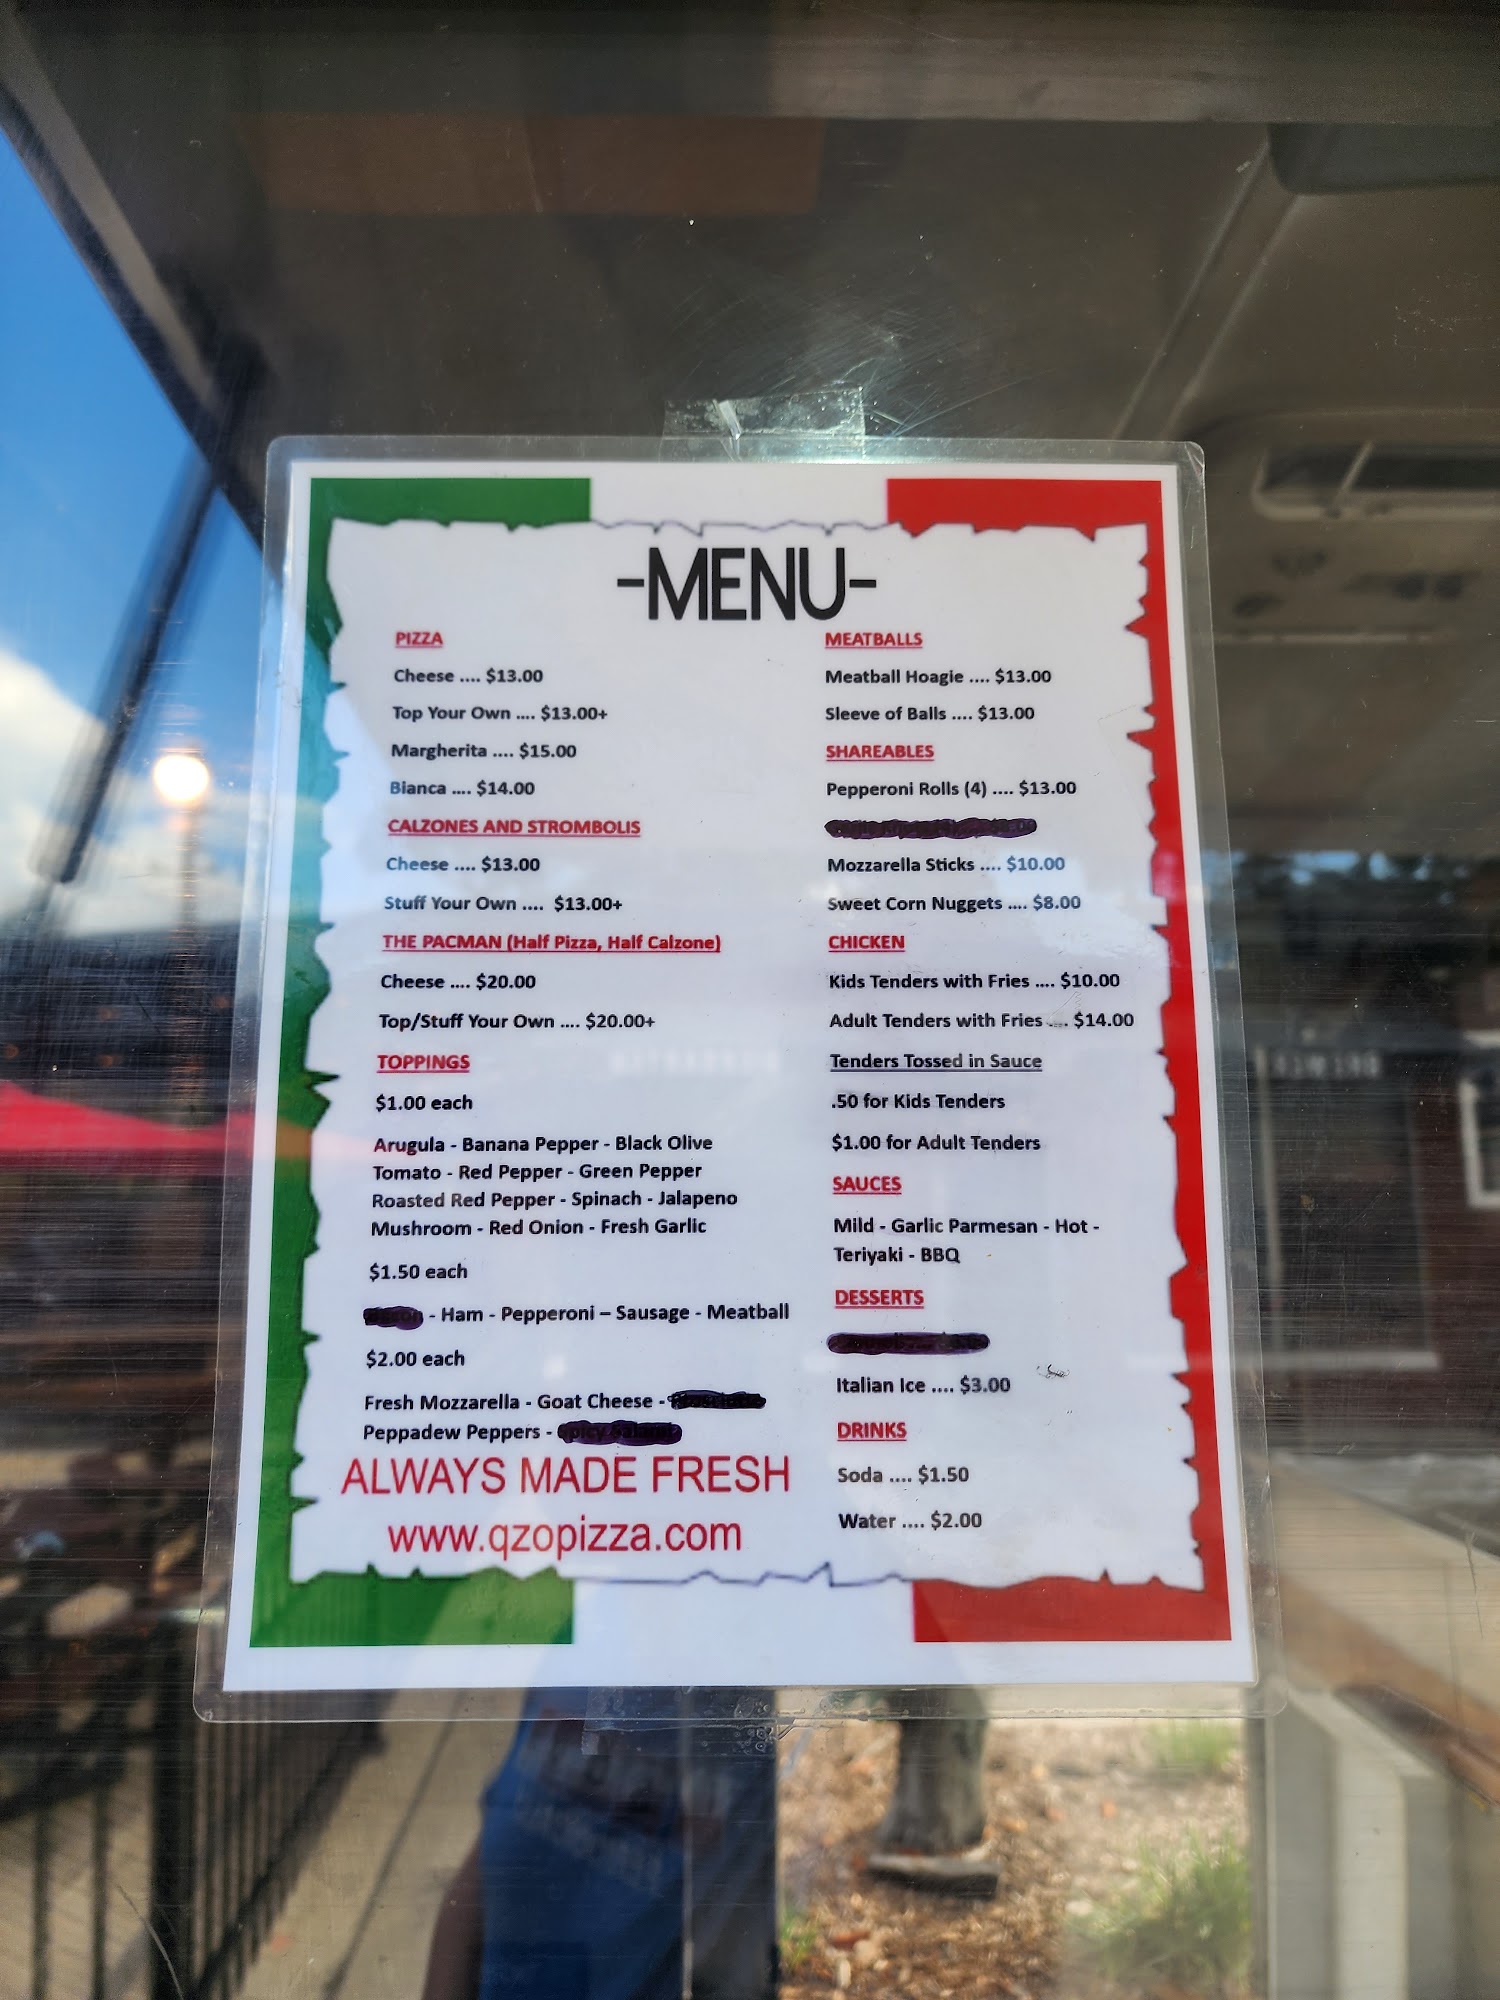 -MENU-
PIZZA
Cheese .... $13.00
Top Your Own .... $13.00+
Margherita .... $15.00
Bianca .... $14.00
CALZONES AND STROMBOLIS
Cheese .... $13.00
Stuff Your Own .... $13.00+
THE PACMAN (Half Pizza, Half Calzone)
Cheese .... $20.00
Top/Stuff Your Own .... $20.00+
TOPPINGS
$1.00 each
Arugula - Banana Pepper - Black Olive
Tomato - Red Pepper - Green Pepper
Roasted Red Pepper - Spinach - Jalapeno
Mushroom - Red Onion - Fresh Garlic
$1.50 each
- Ham - Pepperoni – Sausage - Meatball
$2.00 each
Fresh Mozzarella - Goat Cheese -
Peppadew Peppers -
ALWAYS MADE FRESH
www.qzopizza.com
MEATBALLS
Meatball Hoagie .... $13.00
Sleeve of Balls .... $13.00
SHAREABLES
Pepperoni Rolls (4) .... $13.00
Mozzarella Sticks .... $10.00
Sweet Corn Nuggets .... $8.00
CHICKEN
Kids Tenders with Fries .... $10.00
Adult Tenders with Fries .... $14.00
Tenders Tossed in Sauce
.50 for Kids Tenders
$1.00 for Adult Tenders
SAUCES
Mild - Garlic Parmesan - Hot -
Teriyaki - BBQ
DESSERTS
Italian Ice .... $3.00
DRINKS
Soda .... $1.50
Water .... $2.00